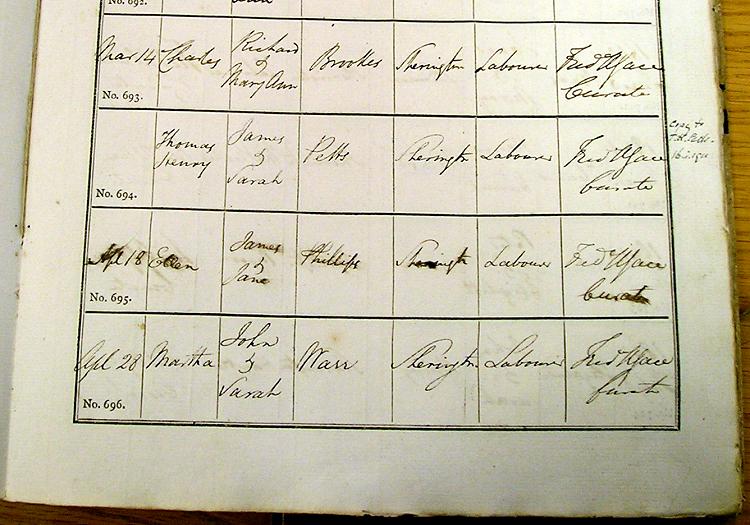 No. 692.
Mar 14 Charles Richard & Mary Ann Brookes Sherington Labourer Fred
Curate
No. 693.
Thomas Henry James & Sarah Petts Sherington Labourer Fred
Curate
No. 694.
Apl 18 Ellen James & Jane Phillips Sherington Labourer Fred
Curate
No. 695.
Apl 28 Martha John & Sarah Warr Sherington Labourer Fred
Curate
No. 696.